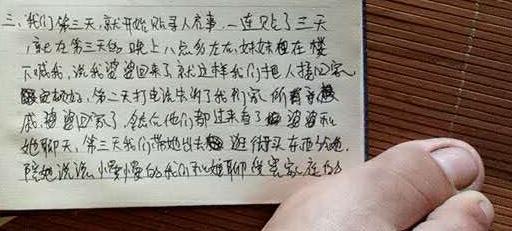 三、我们第三天,就开始贴寻人启事,一连贴了三天
,就在第三天的晚上八点多左右,妹妹在楼
下喊我,说我婆婆回来了就这样我们把人接回家
第二天打电话告诉了我们家所有亲
戚,婆婆回家了,然后他们都过来看了婆婆和
她聊天,第三天我们带她出去逛街买东西给她,
陪她说说,慢慢的我们和她聊